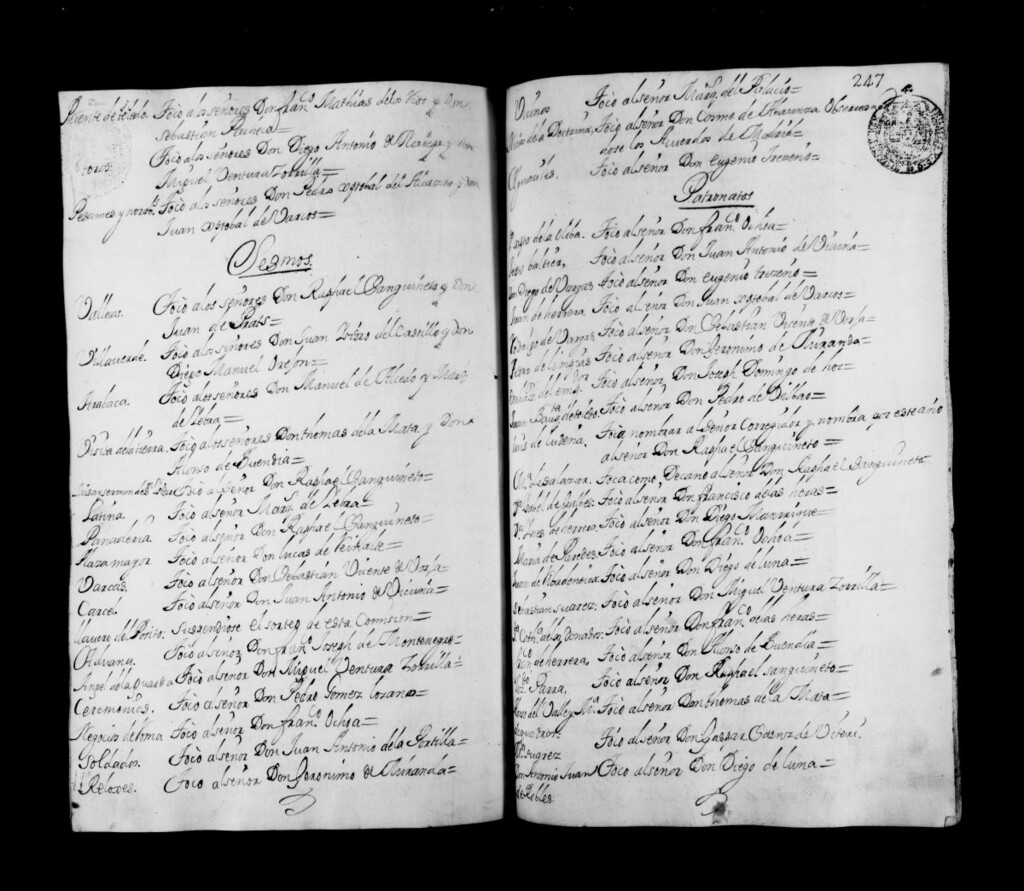 Puente de toledo. Tocò a los señores Don fran.co Mathias del Rio y Don
Sebastian Pacheco=
Toros. Tocò a los señores Don Diego Antonio de Noriega y Don
Miguel Ventura Zorrilla=
Pesames y norabs. Tocò a los señores Don Pedro xptobal del Alcazar y Don
Juan xptobal de Varcos=
Sesmos.
Vallecas. Tocò a los señores Don Raphael Sanguineto y Don
Juan de Prats=
Villaverde. Tocò a los señores Don Juan del Castillo y Don
Diego Manuel
Aravaca. Tocò a los señores Don Manuel de Alcedo y
de Lebra=
Visita de la tierra. Tocò a los señores Don thomas de la Mata y Don
Alonso de Buendia=
Tocò al Señor Don Raphael Sanguineto=
Latina. Tocò al señor Marq.s de Lebra=
Panaderia Tocò al señor Don Raphael Sanguineto=
Plaza mayor Tocò al señor Don Lucas de
Varcas. Tocò al señor Don Sebastian Vicente de Vorja=
Carcel. Tocò al señor Don Juan Antonio de Vicuña=
llavero del Posito: Suspendiose el sorteo de esta Comision=
Aduana. Tocò al señor Don fran.co Joseph de Montenegro=
Angel de la Guarda Tocò al señor Don Miguel Ventura Zorrilla=
Ceremonies. Tocò al señor Don Pedro Gomez Lozano=
Negocios de Roma Tocò al señor Don fran.co Ochoa=
Soldados. Tocò al señor Don Juan Antonio de la Portilla=
Reloxes. Tocò al señor Don Geronimo de Miranda=
247
Tocò al señor Marq.s del Palacio=
de la Doctrina, Tocò al señor Don Cosme de Abaunza Observan
dose los Acuerdos de Madrid=
Tocò al señor Don eugenio treveño=
Patronatos
Tocò al señor Don fran.co Ochoa=
Tocò al señor Don Juan Antonio de Vicuña=
Diego de Vargas Tocò al señor Don eugenio treveño=
Juan de herrera. Tocò al señor Don Juan xptobal de Varcos=
Rodrigo de Vargas Tocò al señor Don Sebastian Vicente de Vorja=
Tocò al señor Don Geronimo de Miranda=
Tocò al señor Don Joseph Domingo de
Juan Bau.ta de toledo. Tocò al señor Don Pedro de Bilbao=
luis de lucena. Toca nombrar a Señor Corregidor y nombra por este año
al señor Don Raphael Sanguineto=
de salazar. Toca como Decano al señor Don Raphael Sanguineto
Tocò al señor Don Francisco de las heras=
D.a Ynes de herrera. Tocò al señor Don Diego Manrrique=
Maria de Paredes Tocò al señor Don fran.co Ochoa=
Tocò al señor Don Diego de luna=
Sebastian suarez: Tocò al señor Don Miguel Ventura Zorrilla=
Tocò al señor Don fran.co de las heras=
de herrera. Tocò al señor Don Alonso de Buendia=
Parra, Tocò al señor Don Raphael sanguineto=
del Valle y M.a Tocò al señor Don thomas de la Mata=
suarez Tocò al señor Don Gaspar
Don Antonio Juan Tocò al señor Don Diego de luna=
de Robles